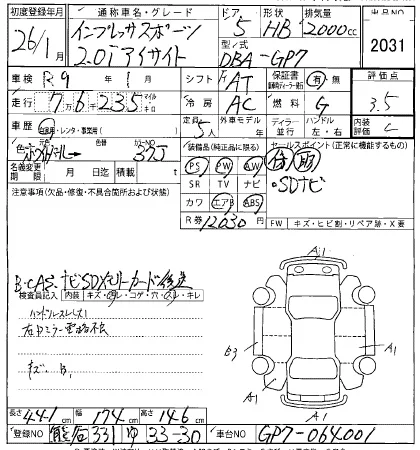 初度登録年月 通称車名・グレード ドア 形状 排気量 出品No
26/1 インプレッサスポーツ 5 HB 2000cc 2031
2.0i アイサイト 型/式 DBA-GP7
車検 R9年1月 シフト FAT 保証書 有・無 評価点
走行 7万6235 マイル キロ 冷房 AC 燃料 G 3.5
車歴 自家用・レンタ・事業用( ) 定員 5人 外車モデル 年 ディーラー 並行 ハンドル 左・右 内装評価 C
色 ホワイトパール→ 色替 カラーNO 37J 装備品(純正品に限る) セールスポイント(正常に機能する)
名義変更期限 月 日迄 積載 t PS PW AW
注意事項(欠品・修復・不具合箇所および状態) SR TV ナビ ・SDナビ
カワ エアB ABS
R券 12030円 FW キズ・ヒビ割・リペア跡・X要
B-CAS、ナビSDメモリーカード後送
検査員記入 内装 キズ・ヨゴレ・コゲ・穴・スレ・キレ
ハンドルスレ
右ドアミラー電格不良
キズ、
A1
A1
B3
A1
A1
A1
長さ 441cm 幅 174cm 高さ 146cm
登録NO 331 ゆ 33-30 車台NO GP7-064001